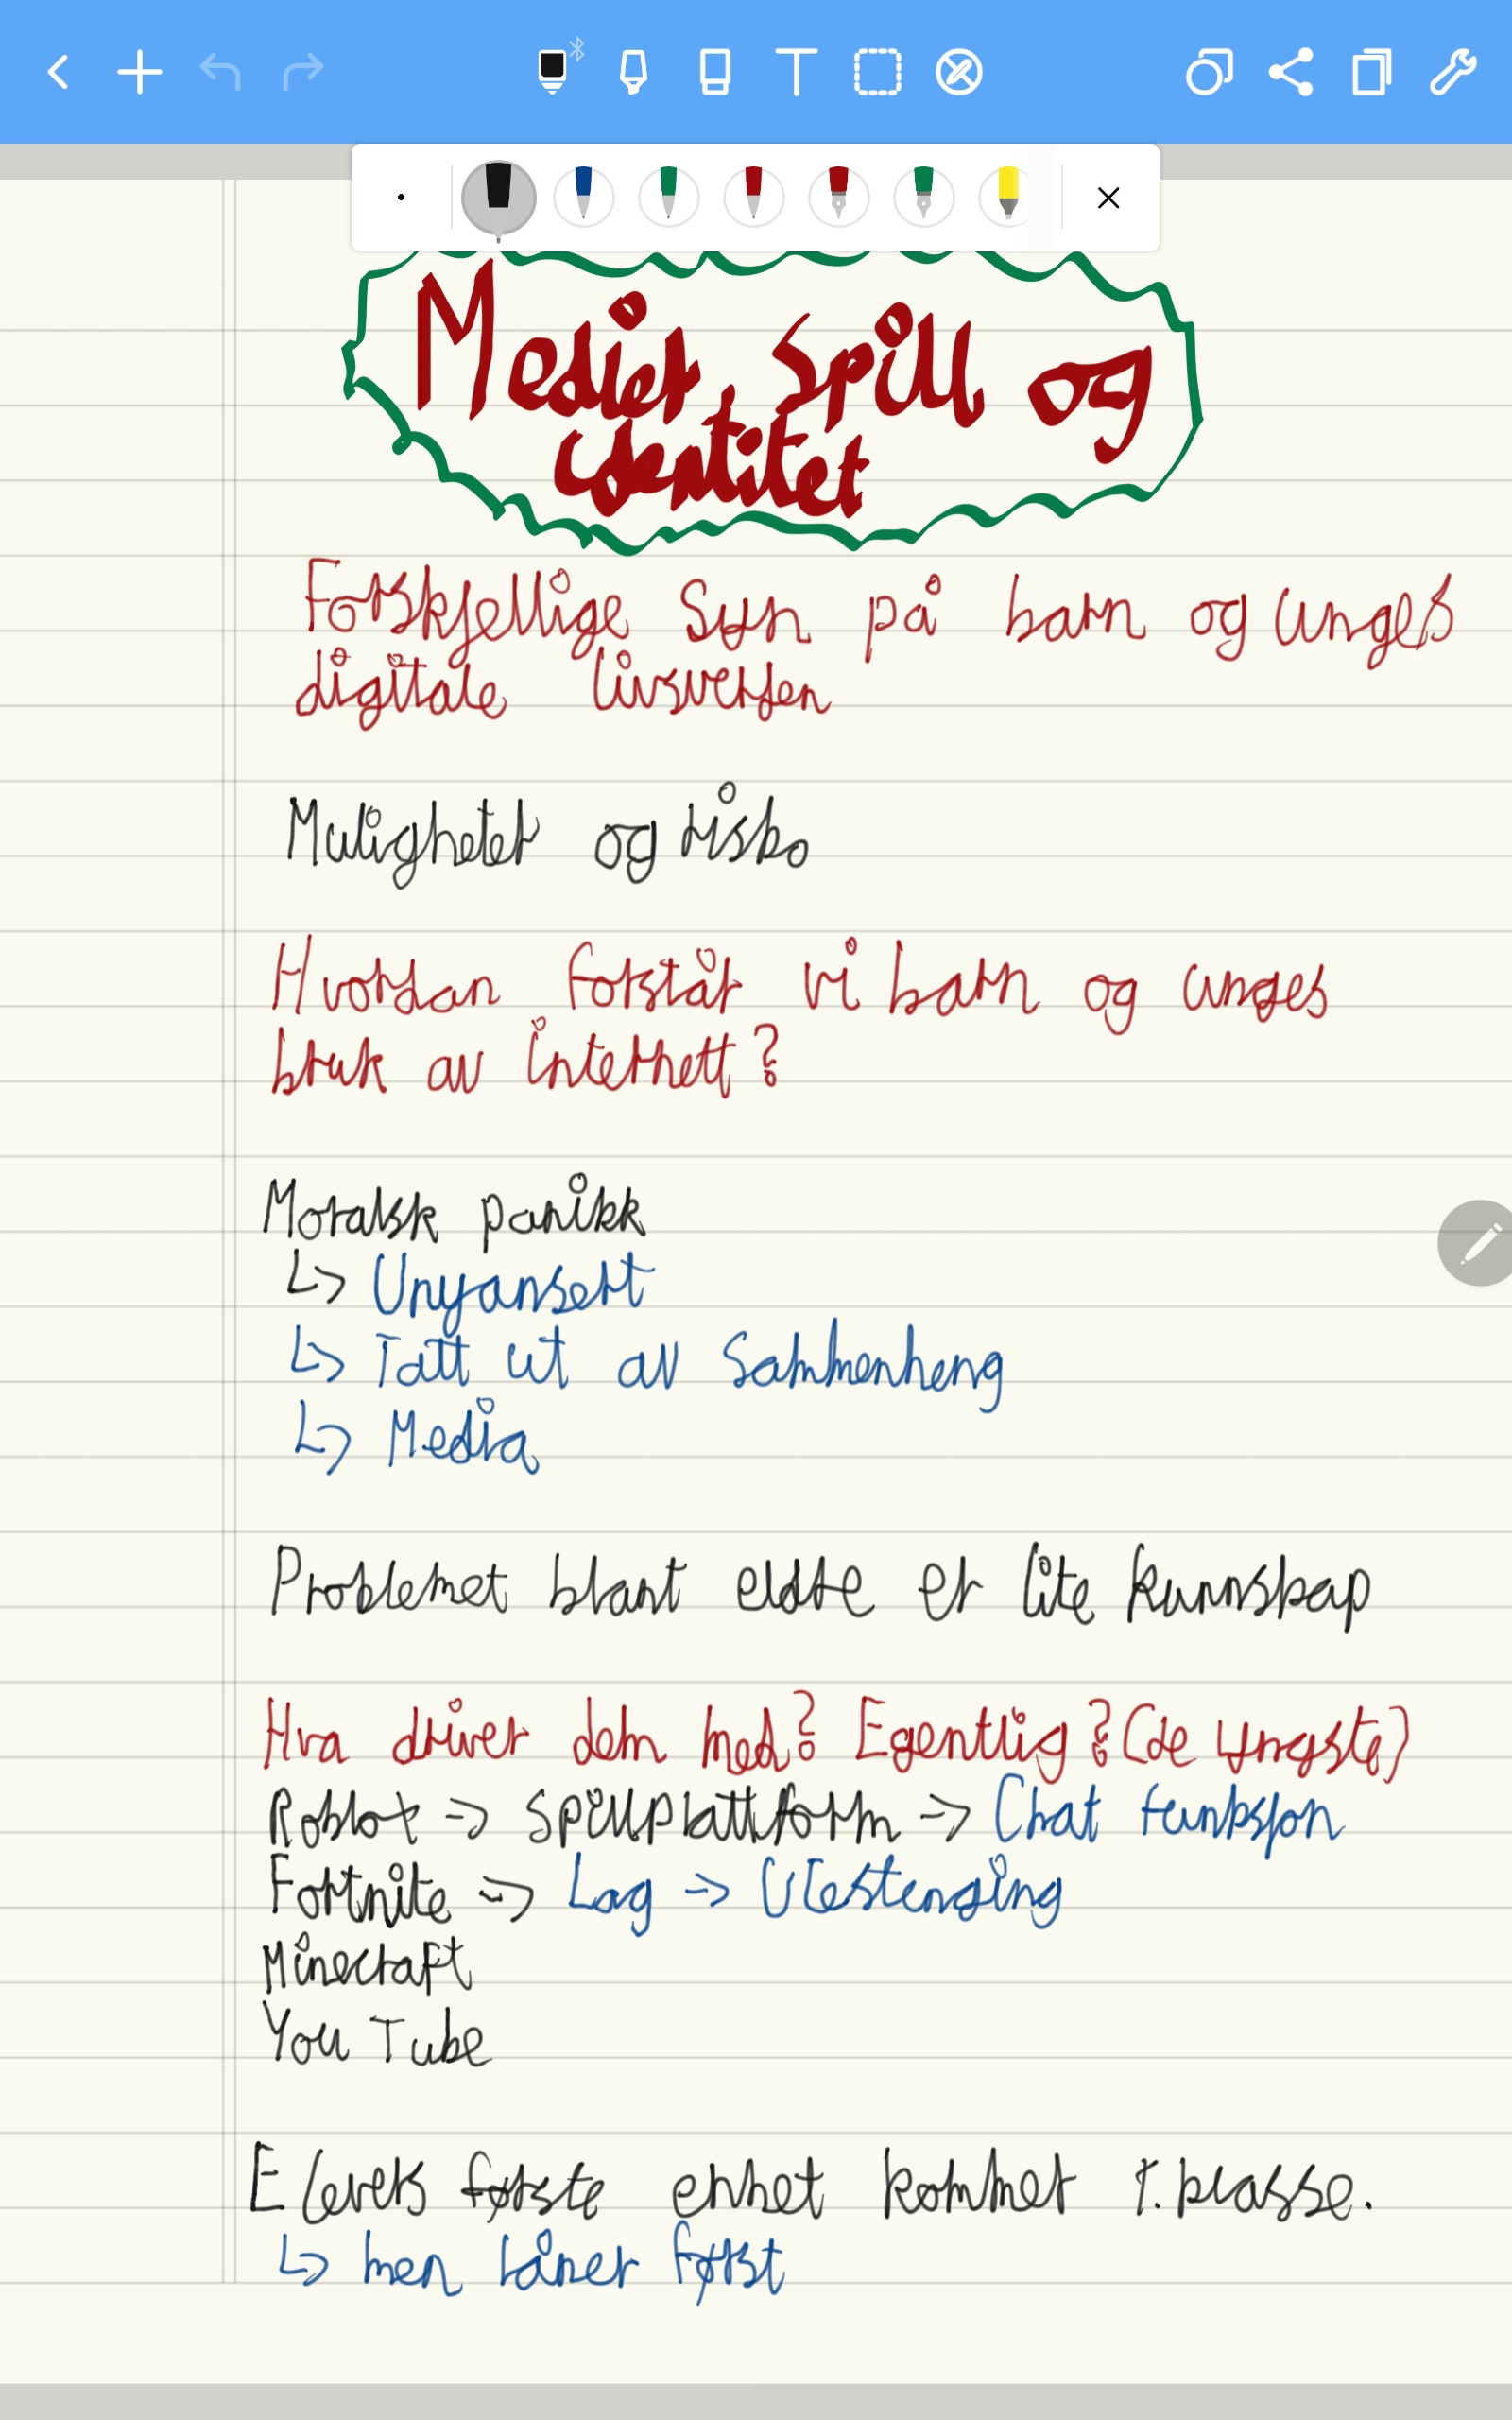 Medier, spill og
identitet
Forskjellige syn på barn og unges
digitale livsverden
Muligheter og risko
Hvordan forstår vi barn og unges
bruk av internett?
Moralsk panikk
↳ Unyansert
↳ Tatt ut av sammenheng
↳ Media
Problemet blant eldre er lite kunnskap
Hva driver dem med? Egentlig? (de yngste)
Roblox => spillplattform => Chat funksjon
Fortnite => Lag => Utestenging
Minecraft
YouTube
Elevers første enhet kommer 1. klasse.
↳ men låner først